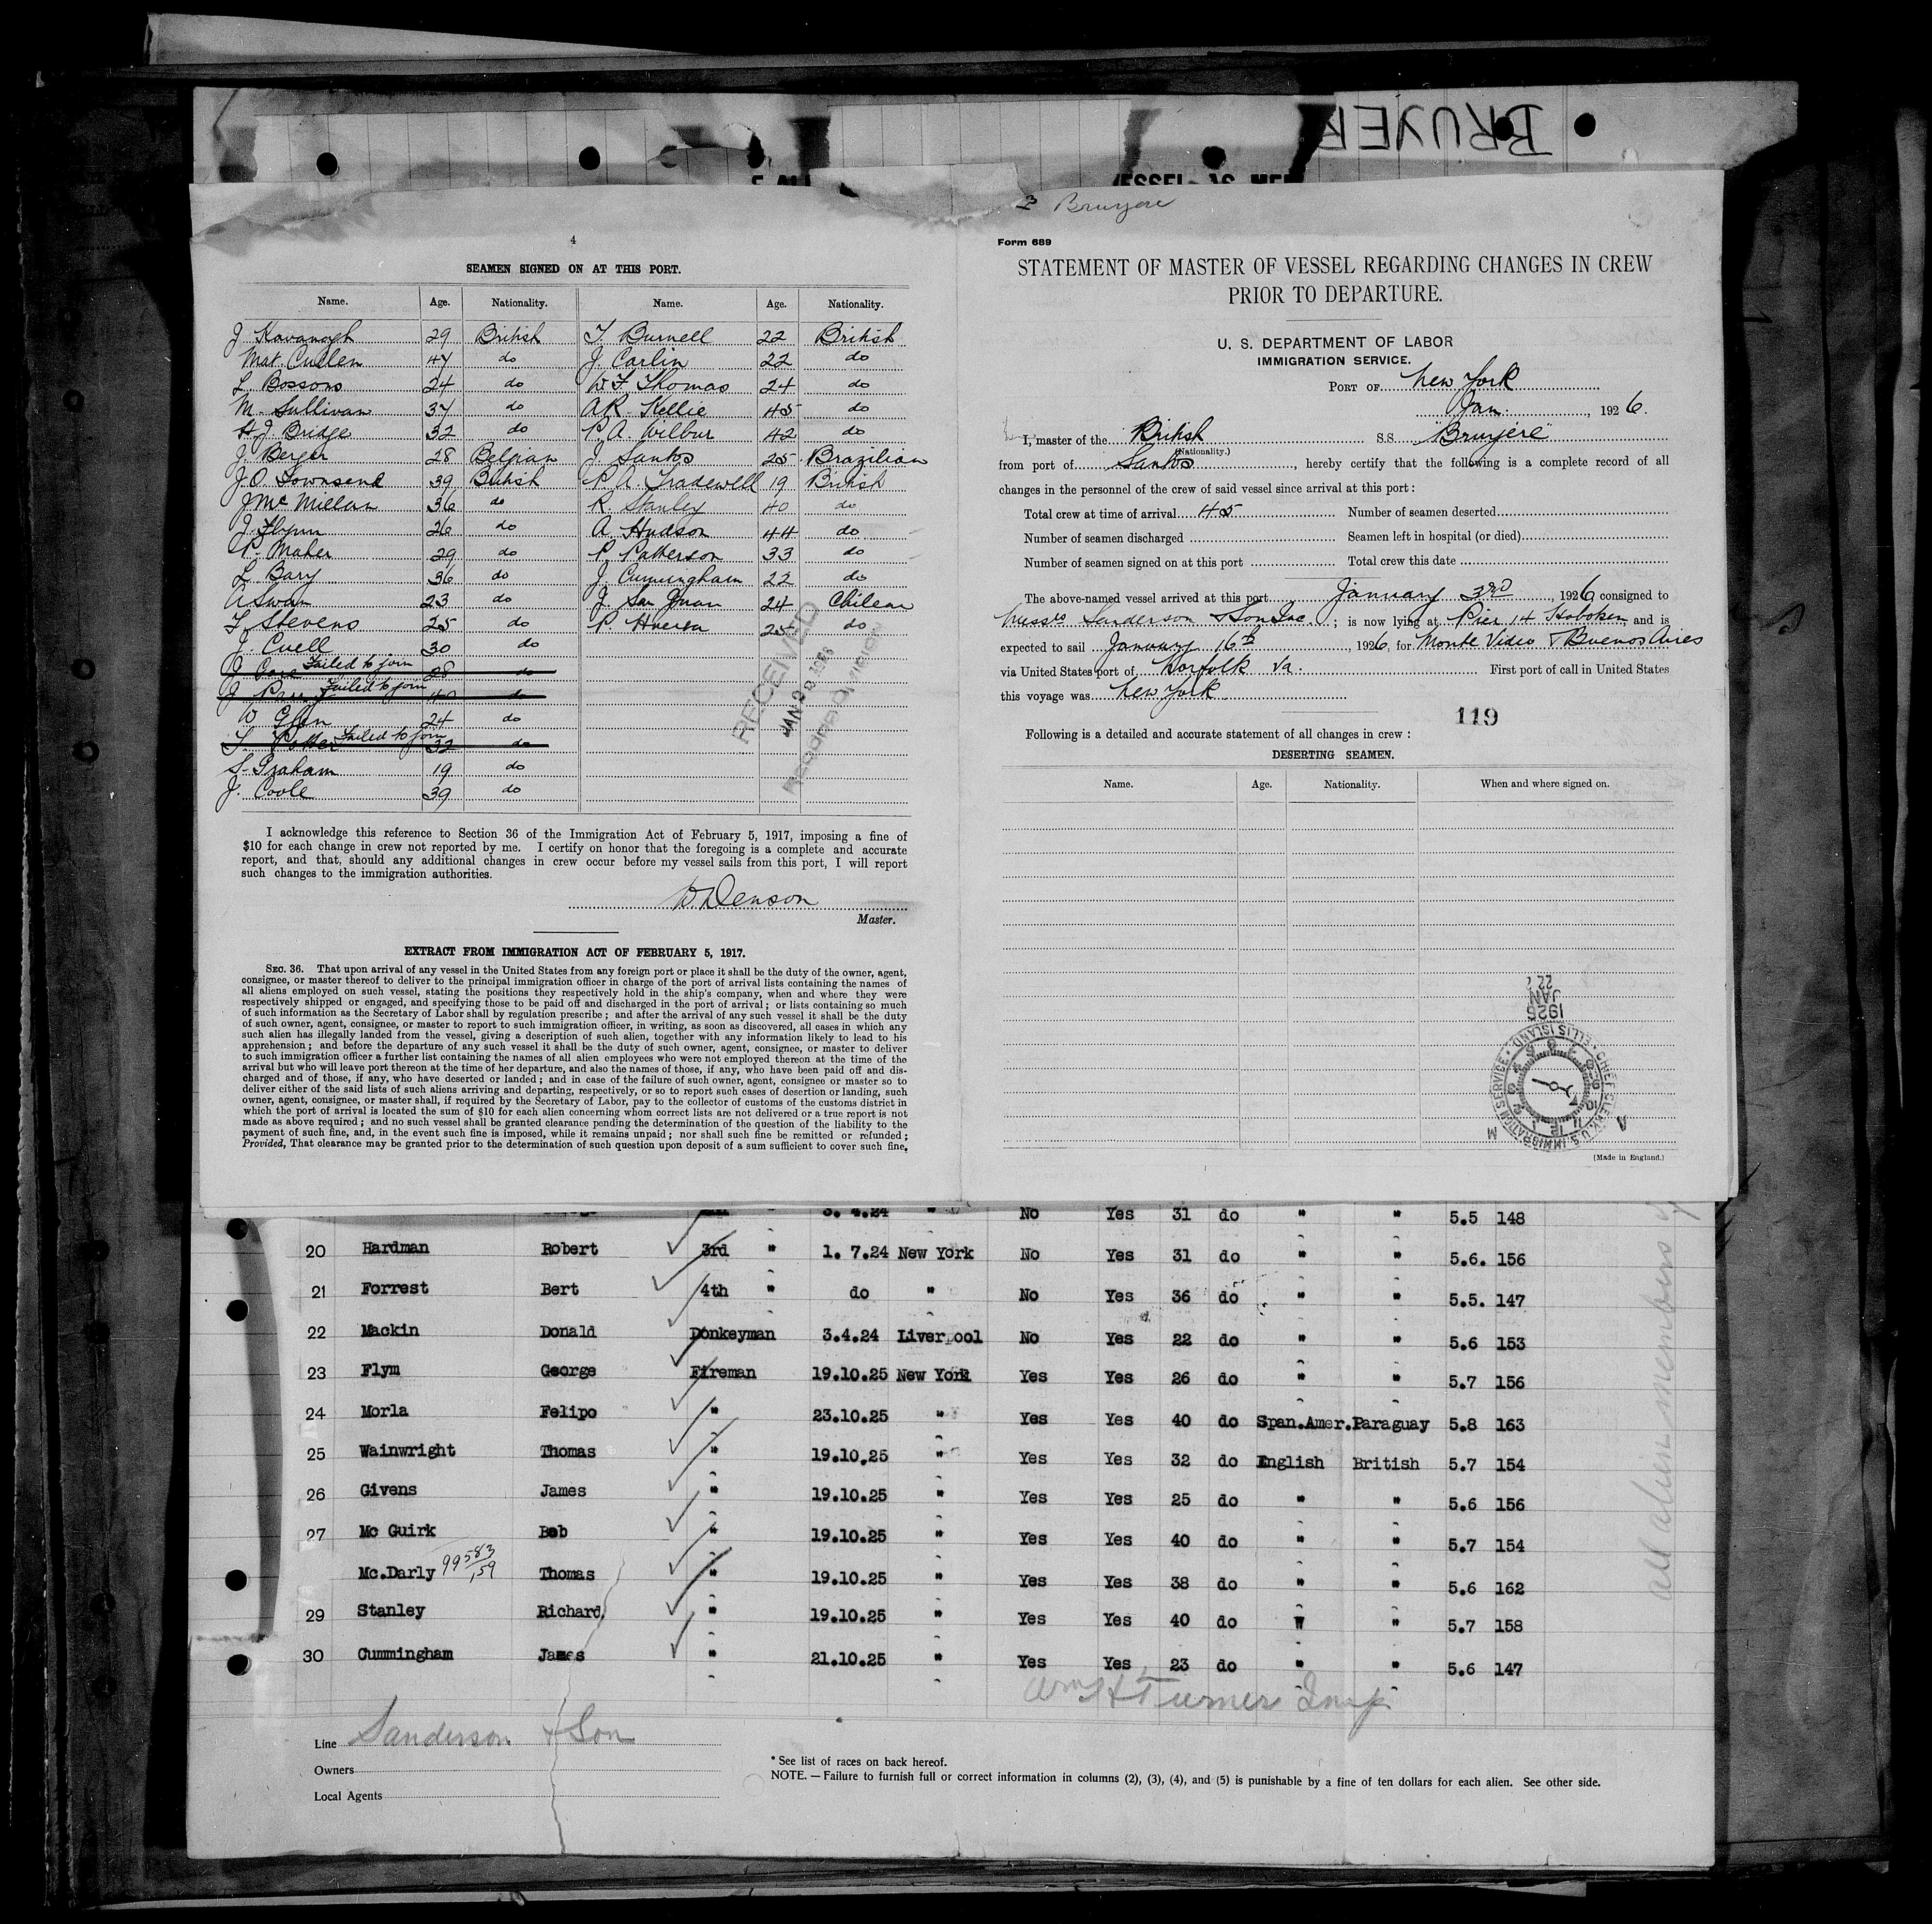 BRUYER
Bruyere
4
SEAMEN SIGNED ON AT THIS PORT.
Name. Age. Nationality. Name. Age. Nationality.
J. Kavanagh 29 British T. Burnell 22 British
Mat. Cullen 47 do J. Carlin 22 do
L. Bossons 24 do W F Thomas 24 do
M. Sullivan 37 do A R. Kellie 45 do
H. J. Bridge 32 do P. A. Wilbur 42 do
J. Berger 28 Belgian J. Santos 25 Brazilian
J. O. Townsend 39 British P. A. Tradewell 19 British
J Mc Millan 36 do R. Stanley 40 do
J. Flynn 26 do A. Hudson 44 do
P. Maher 29 do P. Patterson 33 do
L. Bary 36 do J. Cunningham 22 do
A Swan 23 do J. San Juan 24 Chilean
F Stevens 25 do P. 25 do
J. Cuell 30 do
J Failed to join 28 do
J Failed to join 40 do
W Glen 24 do
Failed to join 32 do
S. Graham 19 do
J. Coole 39 do
RECEIVED
JAN 2
RECORD DIVISION
I acknowledge this reference to Section 36 of the Immigration Act of February 5, 1917, imposing a fine of
$10 for each change in crew not reported by me. I certify on honor that the foregoing is a complete and accurate
report, and that, should any additional changes in crew occur before my vessel sails from this port, I will report
such changes to the immigration authorities.
W. Denson
Master.
EXTRACT FROM IMMIGRATION ACT OF FEBRUARY 5, 1917.
SEC. 36. That upon arrival of any vessel in the United States from any foreign port or place it shall be the duty of the owner, agent,
consignee, or master thereof to deliver to the principal immigration officer in charge of the port of arrival lists containing the names of
all aliens employed on such vessel, stating the positions they respectively hold in the ship's company, when and where they were
respectively shipped or engaged, and specifying those to be paid off and discharged in the port of arrival; or lists containing so much
of such information as the Secretary of Labor shall by regulation prescribe; and after the arrival of any such vessel it shall be the duty
of such owner, agent, consignee, or master to report to such immigration officer, in writing, as soon as discovered, all cases in which any
such alien has illegally landed from the vessel, giving a description of such alien, together with any information likely to lead to his
apprehension; and before the departure of any such vessel it shall be the duty of such owner, agent, consignee, or master to deliver
to such immigration officer a further list containing the names of all alien employees who were not employed thereon at the time of the
arrival but who will leave port thereon at the time of her departure, and also the names of those, if any, who have been paid off and dis-
charged and of those, if any, who have deserted or landed; and in case of the failure of such owner, agent, consignee or master so to
deliver either of the said lists of such aliens arriving and departing, respectively, or so to report such cases of desertion or landing, such
owner, agent, consignee, or master shall, if required by the Secretary of Labor, pay to the collector of customs of the customs district in
which the port of arrival is located the sum of $10 for each alien concerning whom correct lists are not delivered or a true report is not
made as above required; and no such vessel shall be granted clearance pending the determination of the question of the liability to the
payment of such fine, and, in the event such fine is imposed, while it remains unpaid; nor shall such fine be remitted or refunded;
Provided, That clearance may be granted prior to the determination of such question upon deposit of a sum sufficient to cover such fine,
Form 689
STATEMENT OF MASTER OF VESSEL REGARDING CHANGES IN CREW
PRIOR TO DEPARTURE.
U. S. DEPARTMENT OF LABOR
IMMIGRATION SERVICE.
PORT OF New York
Jan. , 1926.
I, master of the British S.S. "Bruyere"
(Nationality.)
from port of Santos, hereby certify that the following is a complete record of all
changes in the personnel of the crew of said vessel since arrival at this port:
Total crew at time of arrival 45 Number of seamen deserted
Number of seamen discharged Seamen left in hospital (or died)
Number of seamen signed on at this port Total crew this date
The above-named vessel arrived at this port January 3rd, 1926 consigned to
Messrs Sanderson & Son Inc. ; is now lying at Pier 14 Hoboken and is
expected to sail January 16th, 1926, for Monte Video & Buenos Aires
via United States port of Norfolk Va. First port of call in United States
this voyage was New York
119
Following is a detailed and accurate statement of all changes in crew:
DESERTING SEAMEN.
Name. Age. Nationality. When and where signed on.
22
JAN
1926
CHIEF CLERK U.S. IMMIGRATION SERVICE ELLIS ISLAND
A M
(Made in England.)
3. 4.24 " No Yes 31 do " " 5.5 148
20 Hardman Robert 3rd " 1. 7.24 New York No Yes 31 do " " 5.6. 156
21 Forrest Bert 4th " do " No Yes 36 do " " 5.5. 147
22 Mackin Donald Donkeyman 3.4.24 Liverpool No Yes 22 do " " 5.6 153
23 Flym George Fireman 19.10.25 New York Yes Yes 26 do " " 5.7 156
24 Morla Felipo " 23.10.25 " Yes Yes 40 do Span.Amer. Paraguay 5.8 163
25 Wainwright Thomas " 19.10.25 " Yes Yes 32 do English British 5.7 154
26 Givens James " 19.10.25 " Yes Yes 25 do " " 5.6 156
27 Mc Guirk Bob " 19.10.25 " Yes Yes 40 do " " 5.7 154
Mc.Darly 99583/159 Thomas " 19.10.25 " Yes Yes 38 do " " 5.6 162
29 Stanley Richard " 19.10.25 " Yes Yes 40 do " " 5.7 158
30 Cummingham James " 21.10.25 " Yes Yes 23 do " " 5.6 147
all alien members
Wm H Turner Insp
Line Sanderson & Son
Owners
Local Agents
* See list of races on back hereof.
NOTE. — Failure to furnish full or correct information in columns (2), (3), (4), and (5) is punishable by a fine of ten dollars for each alien. See other side.